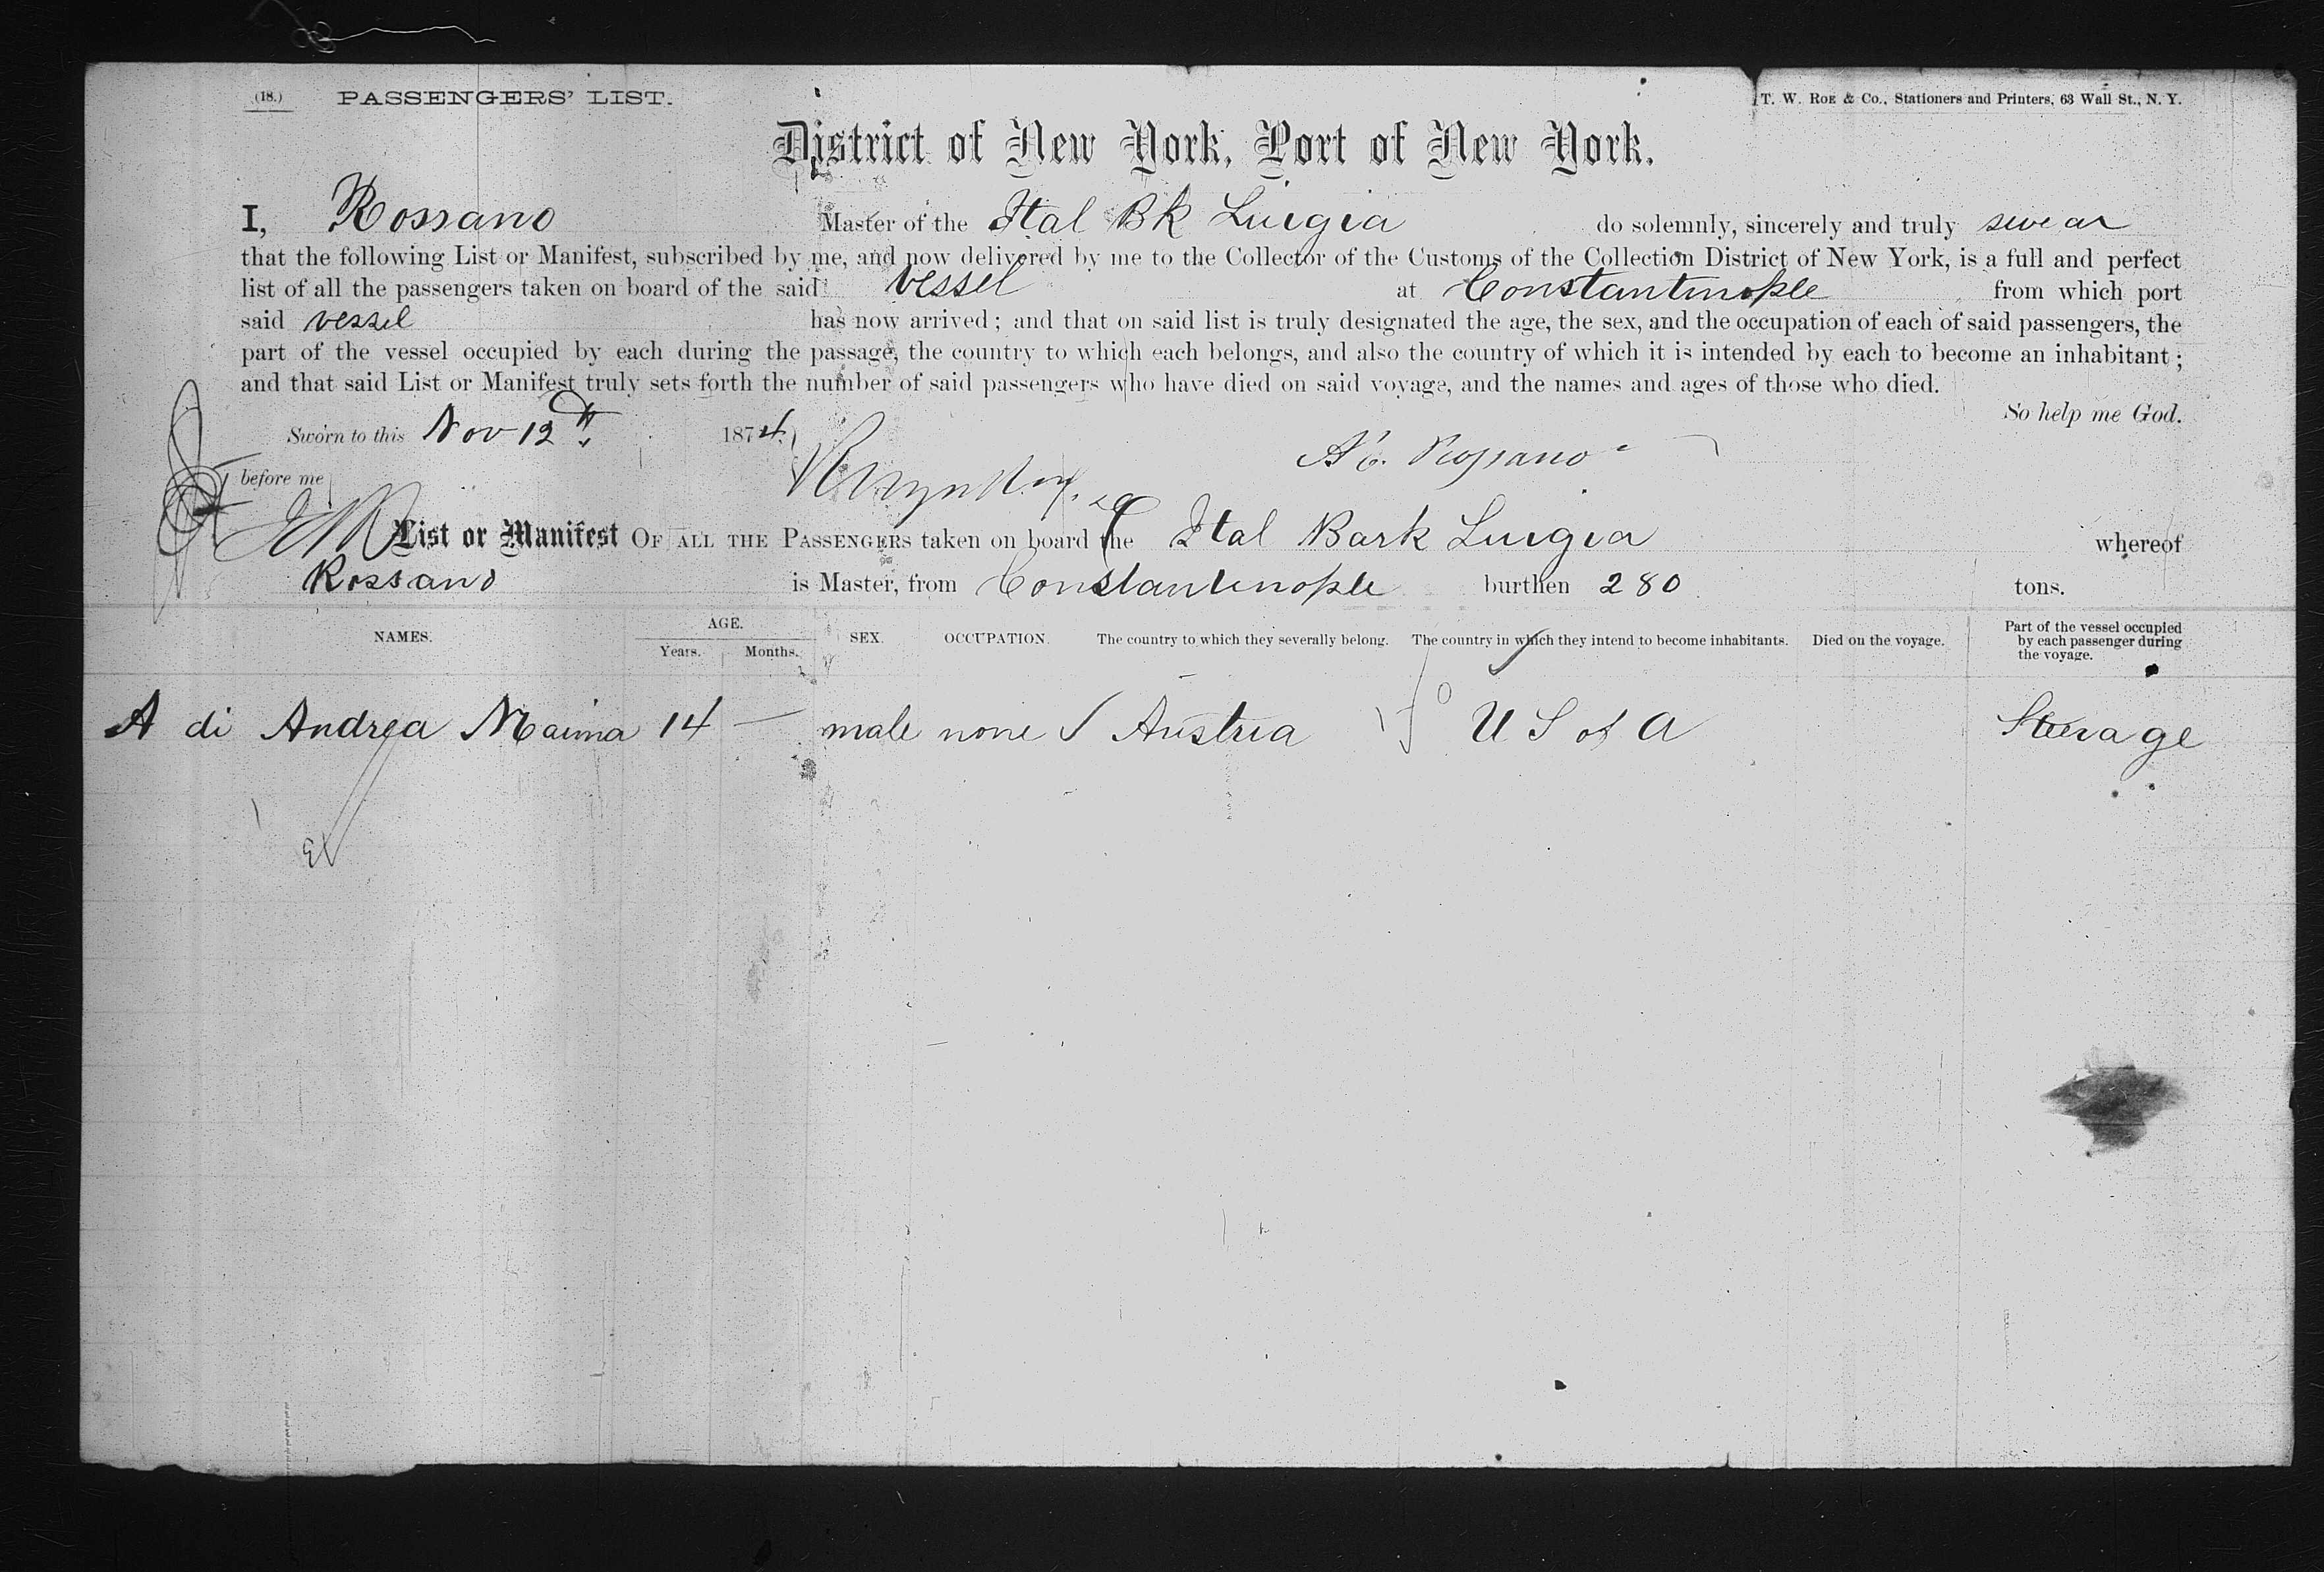 (18.) PASSENGERS' LIST. T. W. ROE & Co., Stationers and Printers, 63 Wall St., N. Y.
District of New York, Port of New York.
I, Rossano Master of the Ital Bk Luigia do solemnly, sincerely and truly swear
that the following List or Manifest, subscribed by me, and now delivered by me to the Collector of the Customs of the Collection District of New York, is a full and perfect
list of all the passengers taken on board of the said vessel at Constantinople from which port
said vessel has now arrived; and that on said list is truly designated the age, the sex, and the occupation of each of said passengers, the
part of the vessel occupied by each during the passage, the country to which each belongs, and also the country of which it is intended by each to become an inhabitant;
and that said List or Manifest truly sets forth the number of said passengers who have died on said voyage, and the names and ages of those who died.
So help me God.
Sworn to this Nov 12th 1874
Rossano
before me
List or Manifest OF ALL THE PASSENGERS taken on board the Ital Bark Luigia whereof
Rossano is Master, from Constantinople burthen 280 tons.
NAMES. AGE. Years. Months. SEX. OCCUPATION. The country to which they severally belong. The country in which they intend to become inhabitants. Died on the voyage. Part of the vessel occupied by each passenger during the voyage.
A di Andrea Maima 14 — male none Austria U S of A Steerage